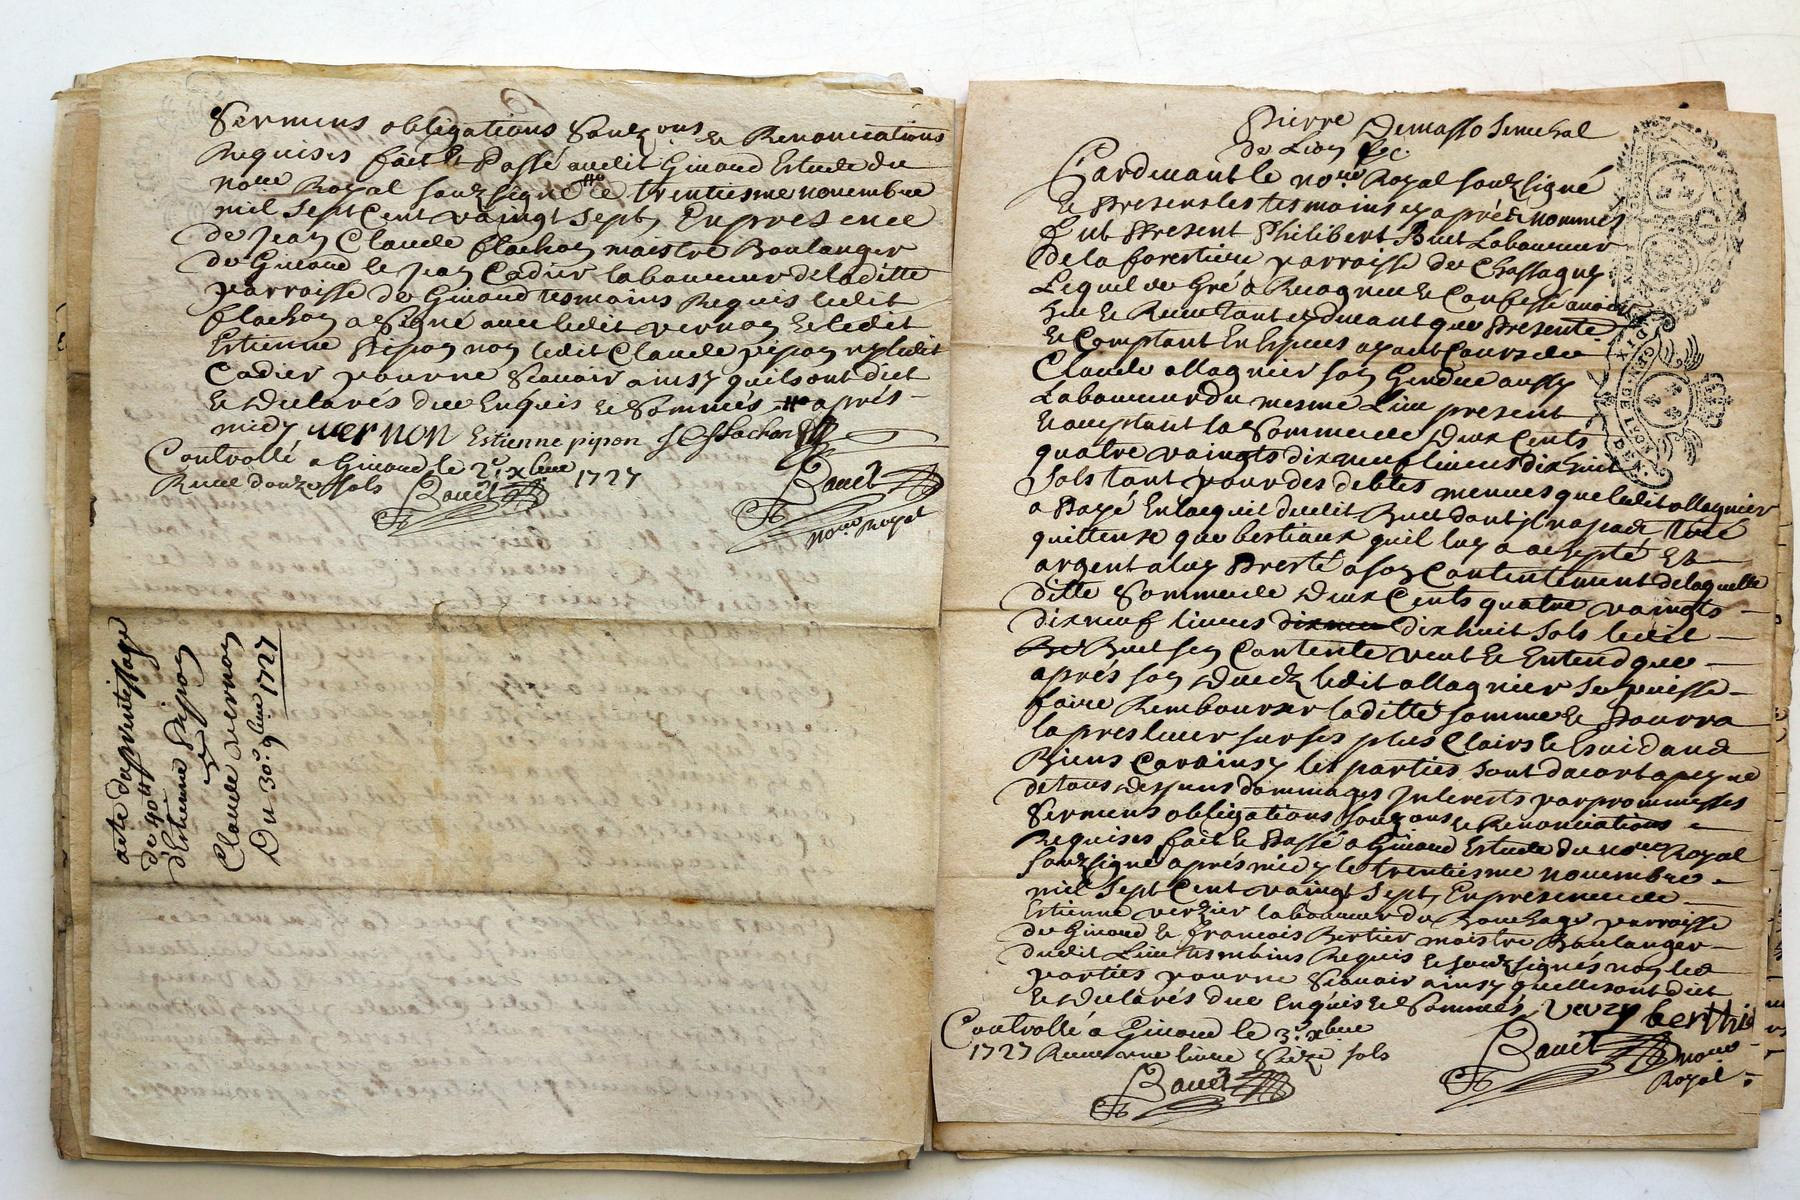 Sermens obligations Soubz ons & Renonciations
Requises fait & Passé audit Giraud Estude du
no.re Royal soubzsigné #o le trentiesme novembre
mil sept Cent vaingt sept, En presence
de Jean Claude flachon maistre Boulanger
de Giraud & Jean Cadier laboureur de laditte
parroisse de Giraud tesmoins Requis ledit
flachon a Signé avec ledit vernon & ledit
Estienne Pipon non ledit Claude pipon ny ledit
Cadier pour ne Scavoir ainsy quils ont dict
& declarés due Enquis & Sommés #o aprés-
midy vernon Estienne pipon J C flachon
Controllé a Giraud le 2.e xbre 1727
Receu douze sols
no.re Royal
acte daprentissage
de 40 tt
d'Estienne Pipon
Claude vernon
Du 30.e 9bre 1727
Pierre Demasso Senechal
de Lion &c.
Pardevant le no.re Royal soubzsigné
& Presens les tesmoins cy aprés nommés
fut Present Philibert Buet Laboureur
de la forestiere parroisse de Chassagny
Lequel de Gré a Recogneu & Confessé avoir
heu & Receu tant cy devant que Presente
& Comptant En Especes ayant Cours de
Claude allagnier son Gendre aussy
Laboureur du mesme Lieu present
Acceptant la Somme de deux Cents
quatre vaingts dix neuf livres dix huit
Sols tant pour des debtes menues que ledit allagnier
a Payé En lacquit dudit Buet dont il na pas Tiré
quittense que bestiaux quil luy a accepté Et
argent a luy Presté a son Contentement de laquelle
ditte Somme de deux Cents quatre vaingts
dix neuf livres dix huit Sols ledit
Buet sen Contente veut & Entend que
aprés son Decedz ledit allagnier se puisse
faire Rembourser laditte somme & Pourra
la preslever sur ses plus Clairs &
Biens Car ainsy les parties sont dacort a peyne
de tous despens dommages Interests par prommesses
Sermens obligations soubz ons & Renonciations
Requises fait & Passé a Giraud Estude du no.re Royal
soubzsigné aprés midy le trentiesme novembre
mil Sept Cent vaingt Sept, En presence de
Estienne verzier laboureur du parroisse
de Giraud & francois Bertier maistre Boulanger
dudit Lieu tesmoins Requis & soubzsignés non les
parties pour ne Scavoir ainsy quelles ont dict
& declarés due Enquis & Sommés,
Controllé a Giraud le 3.e xbre
1727 Receu une livre Seize sols
no.re
Royal